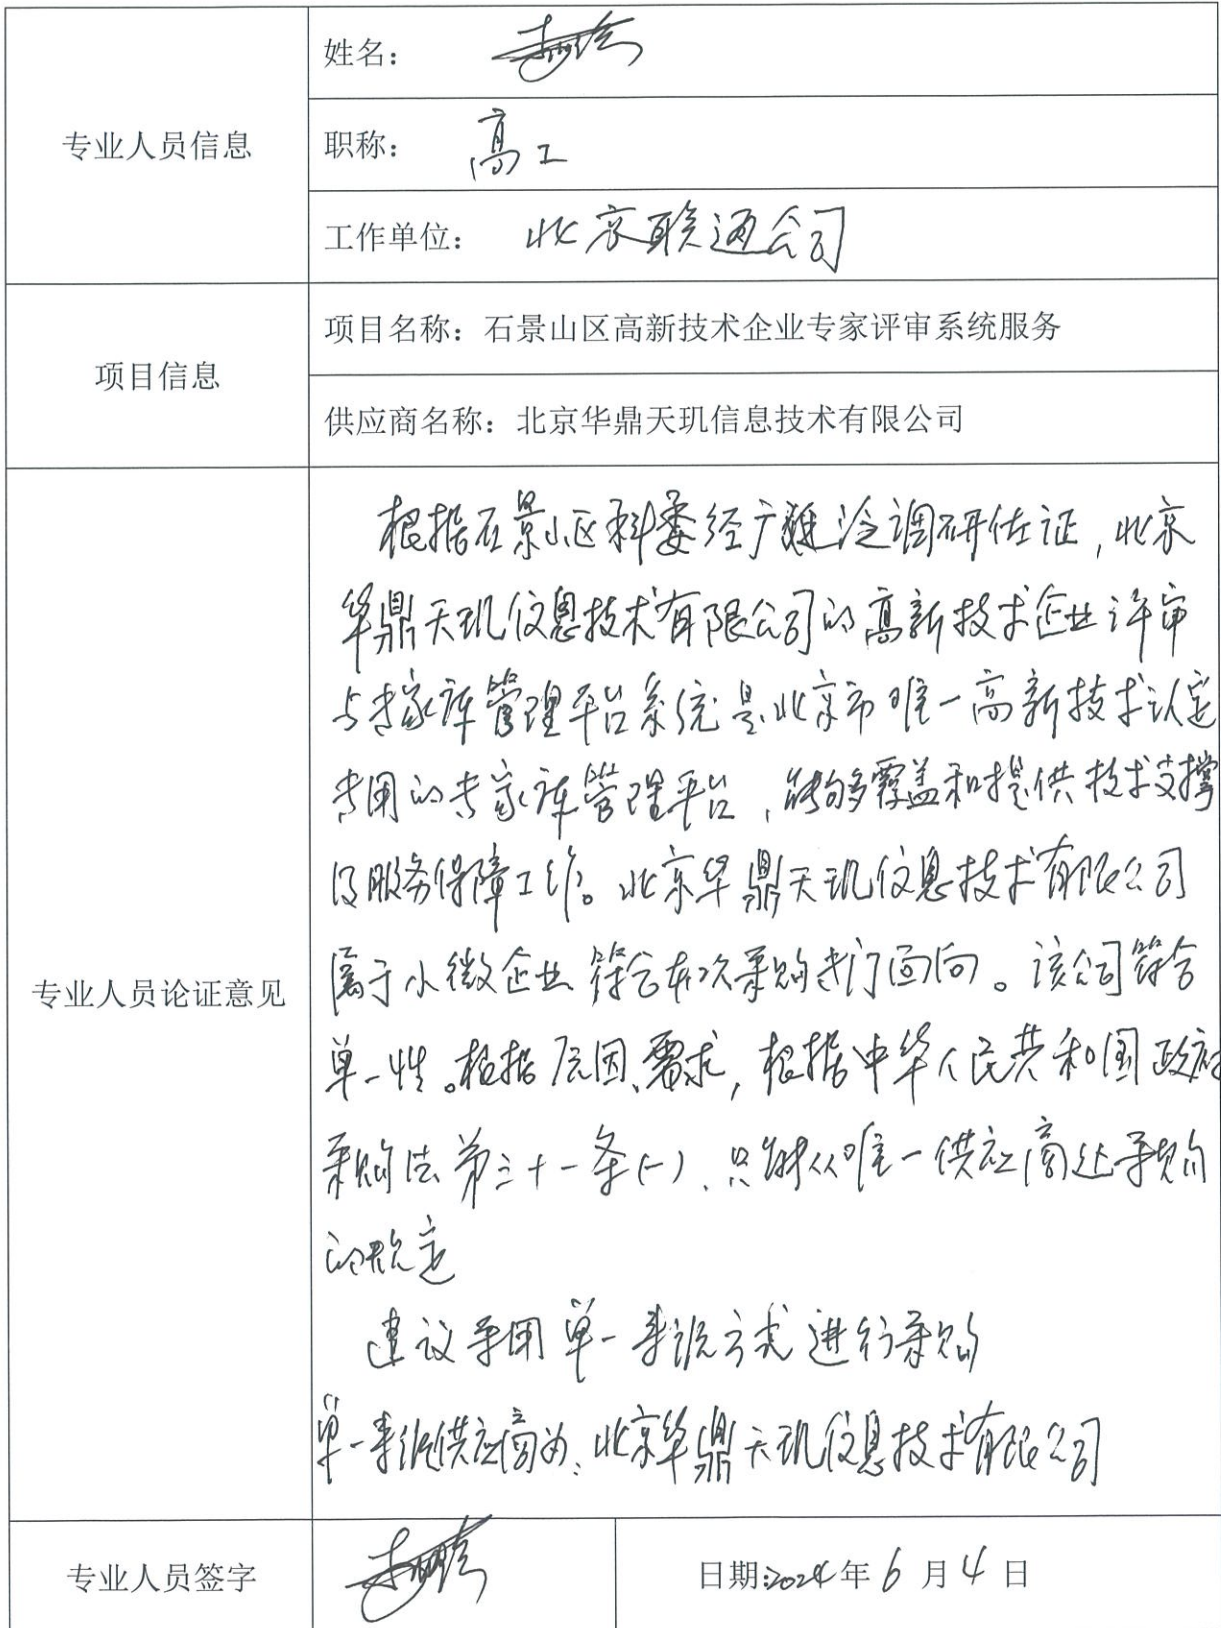 姓名：
专业人员信息
职称： 高工
工作单位： 北京联通公司
项目信息
项目名称：石景山区高新技术企业专家评审系统服务
供应商名称：北京华鼎天玑信息技术有限公司
专业人员论证意见
根据石景山区科委经广泛调研佐证，北京
华鼎天玑信息技术有限公司的高新技术企业评审
与专家库管理平台系统是北京市唯一高新技术认定
专用的专家库管理平台，能够覆盖和提供技术支撑
及服务保障工作。北京华鼎天玑信息技术有限公司
属于小微企业符合本次采购专门面向。该公司符合
单一性。根据原因、需求，根据中华人民共和国政府
采购法第三十一条(一)、只能从唯一供应商处采购
的规定
建议采用单一来源方式进行采购
单一来源供应商为：北京华鼎天玑信息技术有限公司
专业人员签字
日期：2024年6月4日